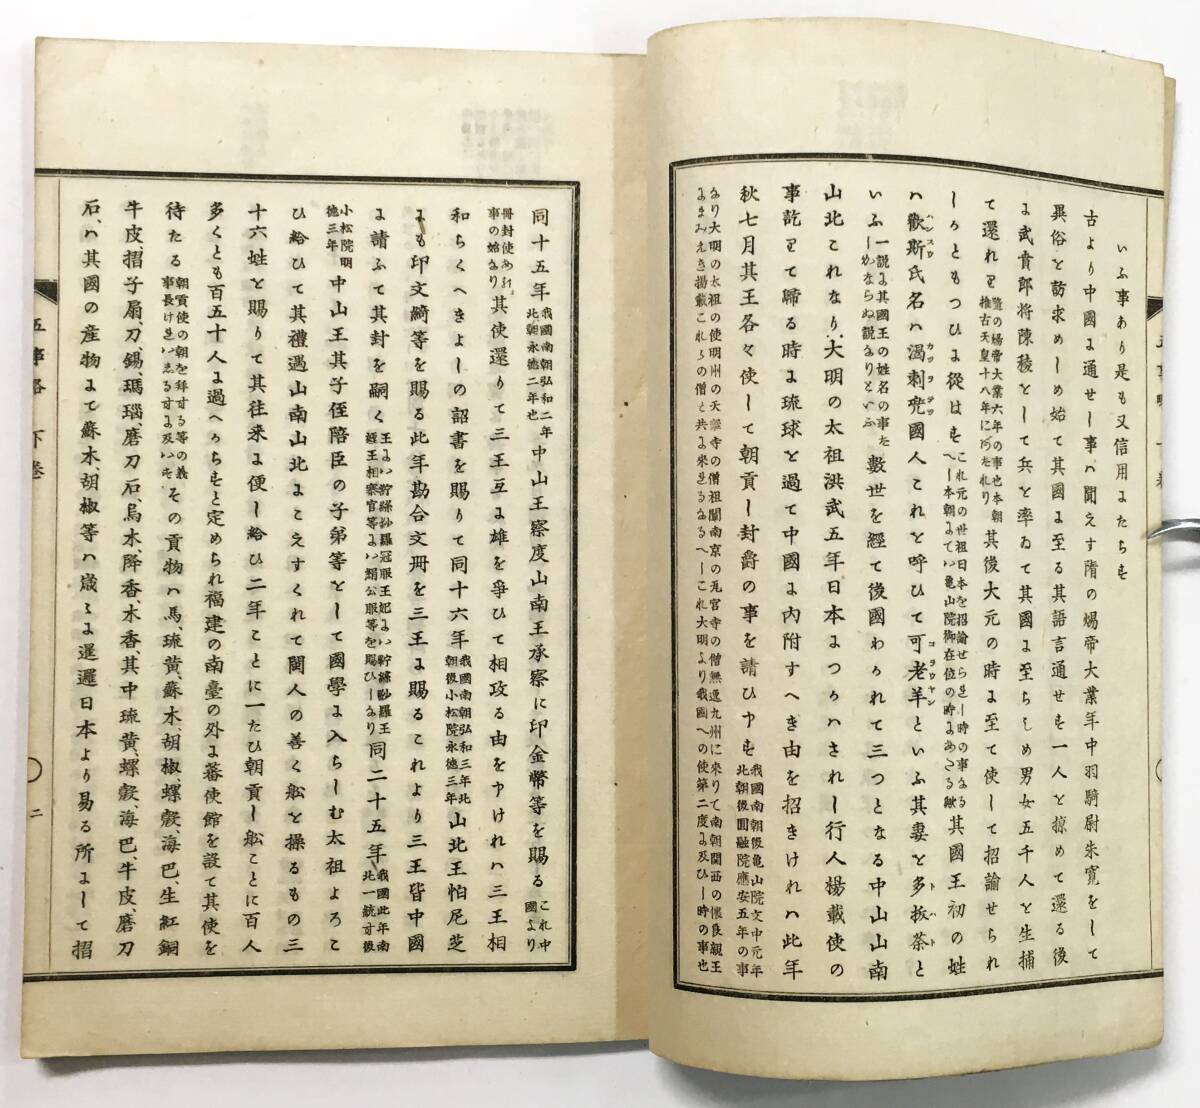 いふ事あり是も又信用よたらす
古より中國よ通せし事ハ聞えす隋の煬帝大業年中羽騎尉朱寛をして
異俗を訪求めしめ始て其國よ至る其語言通せす一人を掠めて還る後
よ武賁郎将陳稜をして兵を率ゐて其國よ至らしめ男女五千人を生捕
て還れり隋の煬帝大業六年の事也本朝推古天皇十八年にあたれり其後大元の時よ至て使して招諭せられ
しかともつひよ從はすこれ元の世祖日本を招諭せられし時の事なるへし本朝よてハ亀山院御在位の時よあたる歟其國王初の姓
ハ歡斯氏名ハ渇剌兜國人これを呼ひて可老羊といふ其妻を多拔荼と
いふ一説よ其國王の姓名の事たしかならぬ説なりといふ數世を經て後國わかれて三つとなる中山山南
山北これなり大明の太祖洪武五年日本よつかハされし行人楊載使の
事訖りて歸る時よ琉球を過て中國よ内附すへき由を招きけれハ此年
秋七月其王各々使して朝貢し封爵の事を請ひ申す我國南朝後亀山院文中元年北朝後圓融院應安五年の事
なり大明の太祖の使明州の天寧寺の僧祖闡南京の瓦官寺の僧無逸九州に來りて南朝関西の懐良親王
よまみえき揚載これらの僧と共よ來れるなるへしこれ大明より我國への使第二度よ及ひし時の事也
同十五年我國南朝弘和二年北朝永德二年也中山王察度山南王承察に印金幣等を賜るこれ中國より
冊封使あれ事の始なり其使還りて三王互よ雄を爭ひて相攻る由を申けれハ三王相
和らくへきよしの詔書を賜りて同十六年我國南朝弘和三年北朝後小松院永德三年山北王怕尼芝
よも印文綺等を賜る此年勘合文冊を三王よ賜るこれより三王皆中國
よ請ふて其封を嗣く王よハ貯絲紗羅冠服王妃よハ貯絲紗羅王姪王相寨官等よハ絹公服等を賜ひしなり同二十五年我國此年南北一統す後
小松院明德三年中山王其子侄陪臣の子弟等をして國學よ入らしむ太祖よろこ
ひ給ひて其禮遇山南山北よこえすくれて閩人の善く舩を操るもの三
十六姓を賜りて其往来よ便し給ひ二年ことに一たひ朝貢し舩ことに百人
多くとも百五十人よ過へからすと定められ福建の南臺の外よ蕃使館を設て其使を
待たる朝貢使の朝を拜する等の義事長けれハしるすよ及ハすその貢物ハ馬、琉黄、蘇木、胡椒、螺殼、海巴、生紅銅
牛皮、摺子扇、刀、錫、瑪瑙、磨刀石、烏木、降香、木香、其中琉黄、螺殼、海巴、牛皮、磨刀
石、ハ其國の産物よて蘇木、胡椒等ハ歳々よ暹邏日本より易る所よして摺
五事略 下卷
二